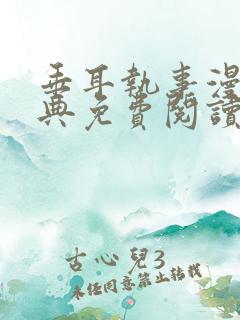 垂耳執事漫
典免費閱讀
古心兒3
未経同意禁止转載